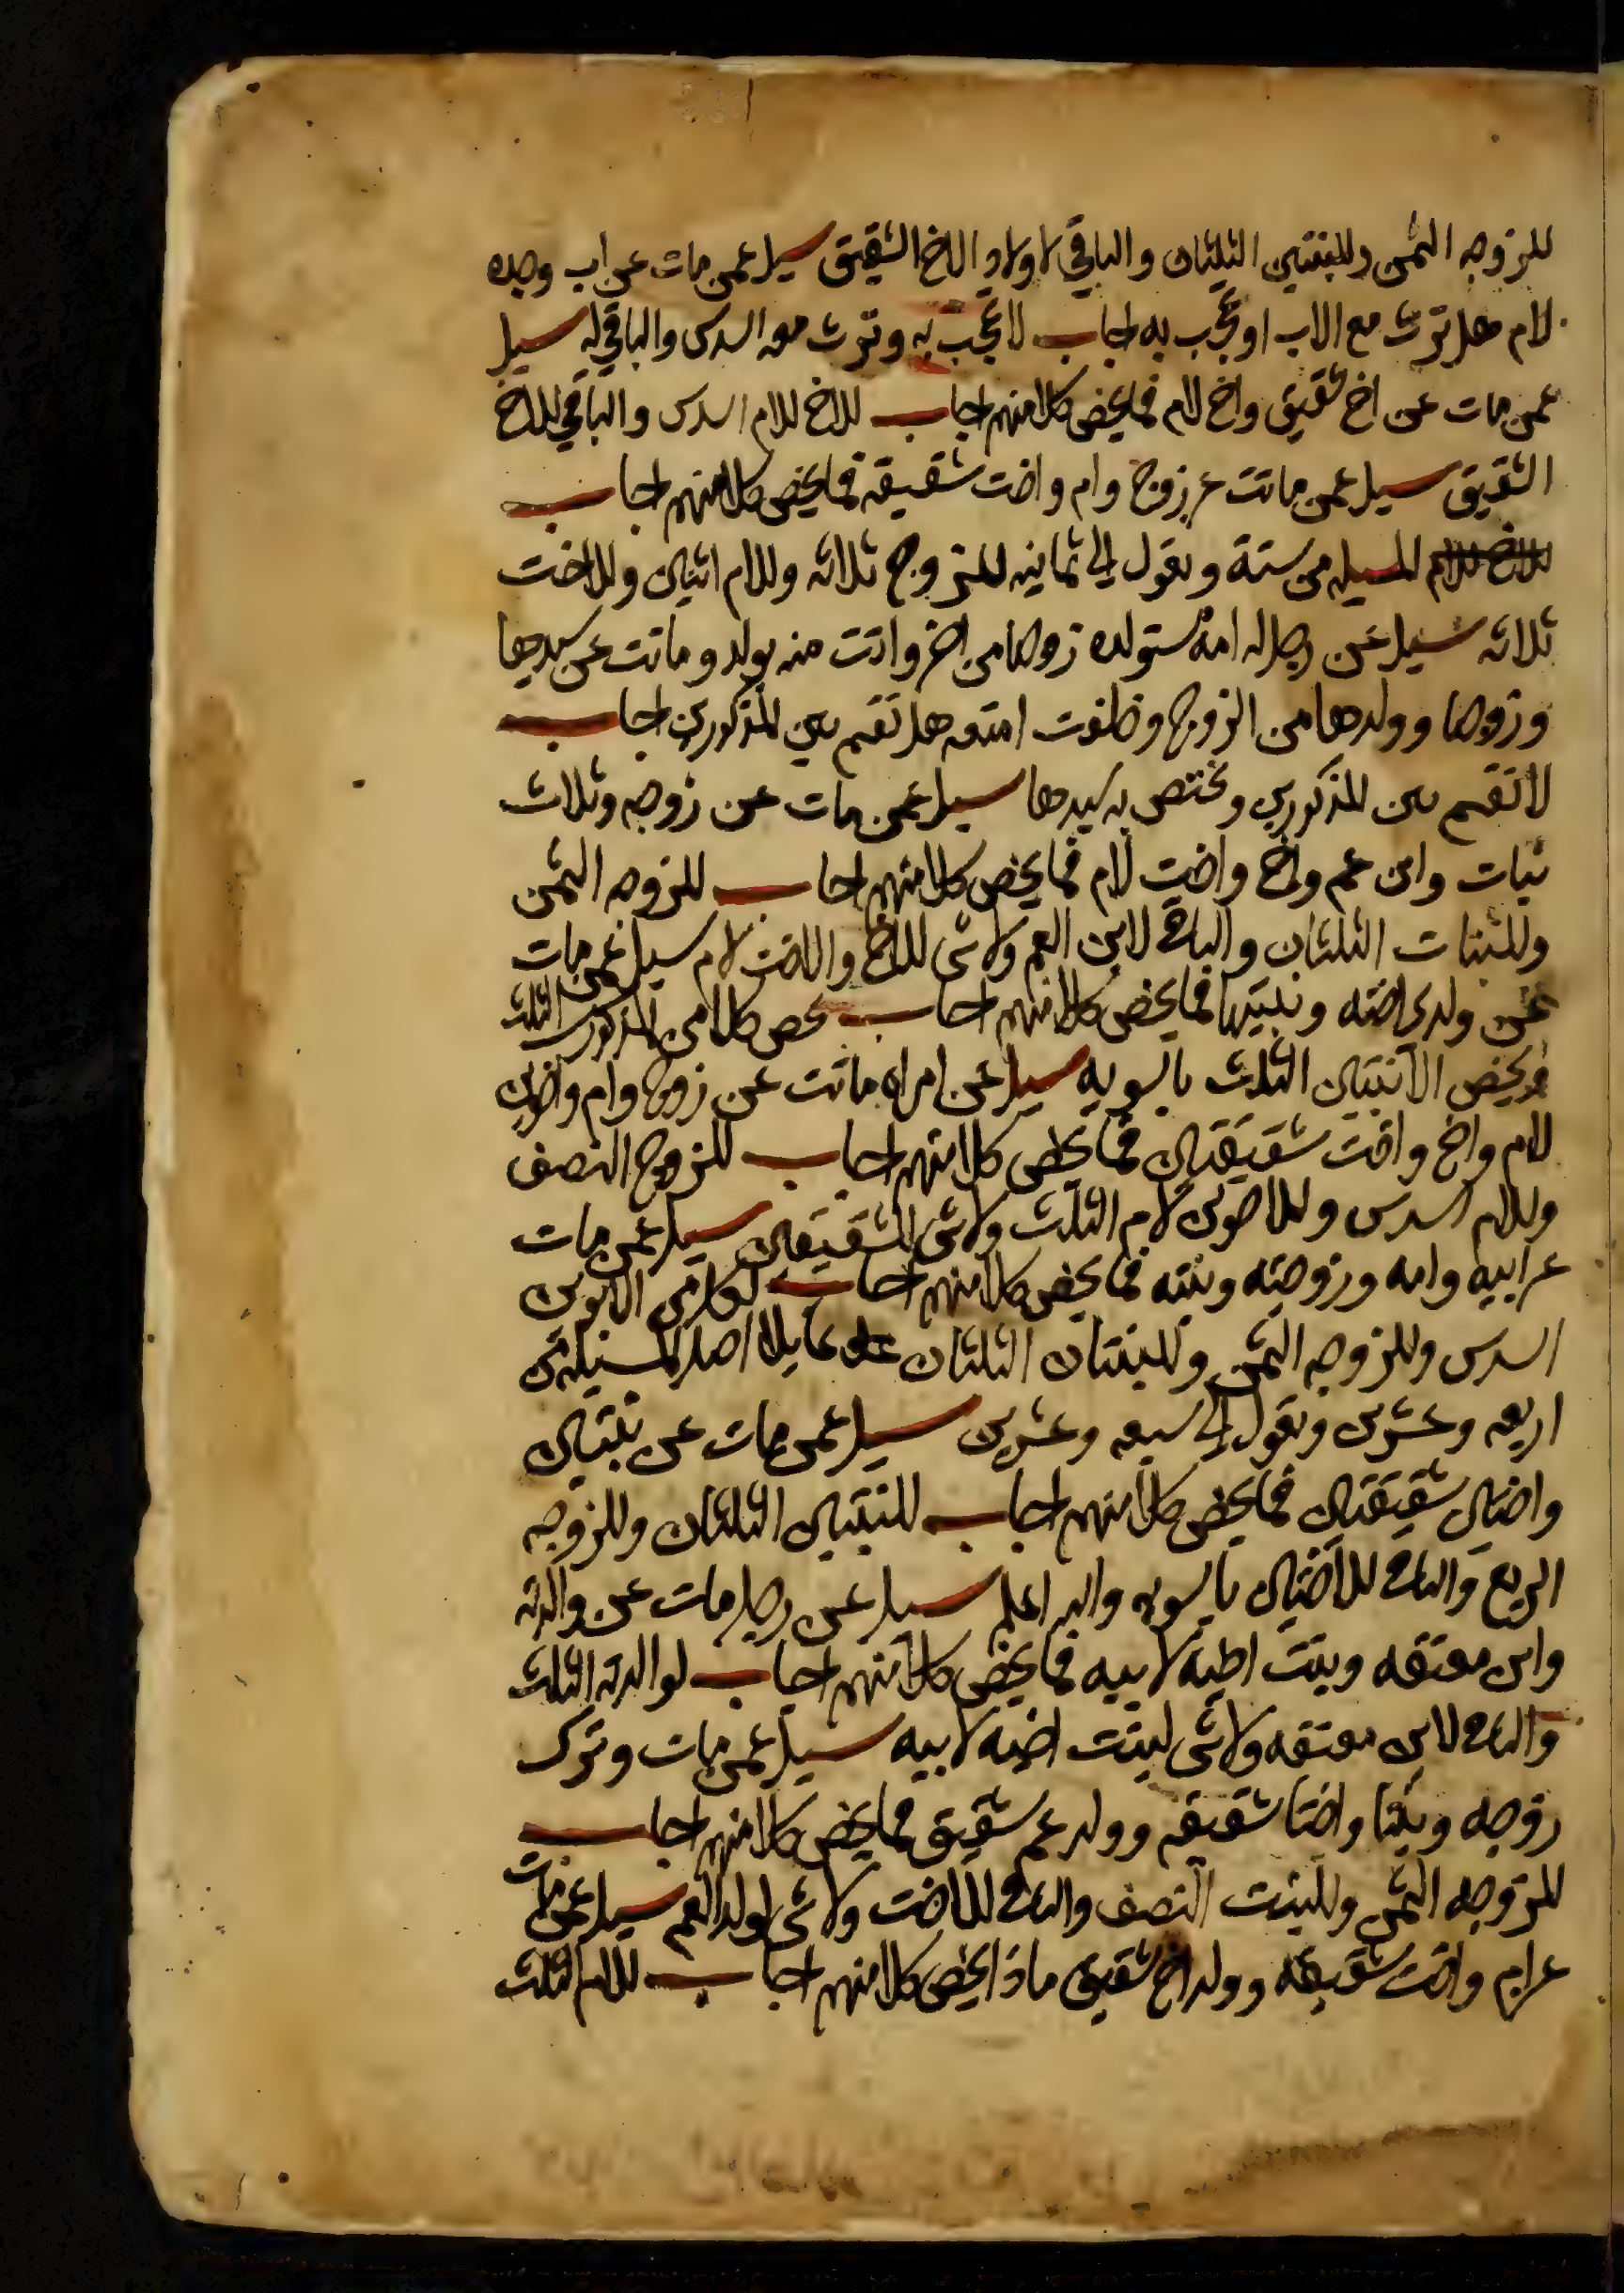 للزوجه الثمن وللبنتين الثلثان والباقي لاولاد الاخ الشقيق سيل عمن مات عن اب وجده
لام هل ترث مع الاب او تحجب به اجاب لا تحجب به وترث معه السدس والباقي له سيل
عمن مات عن اخ شقيق واخ لام فما يخص كلا منهم اجاب للاخ للام السدس والباقي للاخ
الشقيق سيل عمن ماتت عن زوج وام واخت شقيقه فما يخص كلا منهم اجاب
للاخ للام المسيله من ستة وتعول الى ثمانيه للزوج ثلاثه وللام اثنين وللاخت
ثلاثه سيل عن رجل له امة مستولده زوجها من اخر واتت منه بولد وماتت عن سيدها
وزوجها وولدها من الزوج وخلفت امتعه هل تقسم بين المذكورين اجاب
لا تقسم بين المذكورين ويختص به سيدها سيل عمن مات عن زوجه وثلاث
بنات وابن عم واخ واخت لام فما يخص كلا منهم اجاب للزوجه الثمن
وللبنات الثلثان والباقي لابن العم ولا شي للاخ والاخت لام سيل عمن مات
عن ولدي اخته وبنتيها فما يخص كلا منهم اجاب يخص كلا من المذكورين الثلث
ويخص الانثتين الثلث بالسويه سيل عن امراه ماتت عن زوج وام واخوين
لام واخ واخت شقيقين فما يخص كلا منهم اجاب للزوج النصف
وللام السدس وللاخوين لام الثلث ولا شي للشقيقين سيل عمن مات
عن ابيه وامه وزوجته وبنته فما يخص كلا منهم اجاب لكل من الابوين
السدس وللزوجه الثمن وللبنتان الثلثان عايلا اصل المسيله من
اربعه وعشرين وتعول الى سبعه وعشرين سيل عمن مات عن بنتين
واختين شقيقتين فما يخص كلا منهم اجاب للبنتين الثلثان وللزوجه
الربع والباقي للاختين بالسويه والله اعلم سيل عن رجل مات عن والدته
وابن معتقه وبنت اخيه لابيه فما يخص كلا منهم اجاب لوالدته الثلث
والباقي لابن معتقه ولا شي لبنت اخيه لابيه سيل عمن مات وترك
زوجه وبنتا واختا شقيقه وولد عم شقيق فما يخص كلا منهم اجاب
للزوجه الثمن وللبنت النصف والباقي للاخت ولا شي لولد العم سيل عمن مات
عن ام واخت شقيقه وولد اخ شقيق ماذا يخص كلا منهم اجاب للام الثلث